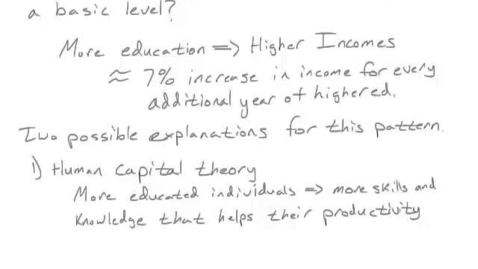 a basic level?
More education => Higher Incomes
≈ 7% increase in income for every
additional year of highered.
Two possible explanations for this pattern.
1) Human capital theory
More educated individuals => more skills and
Knowledge that helps their productivity